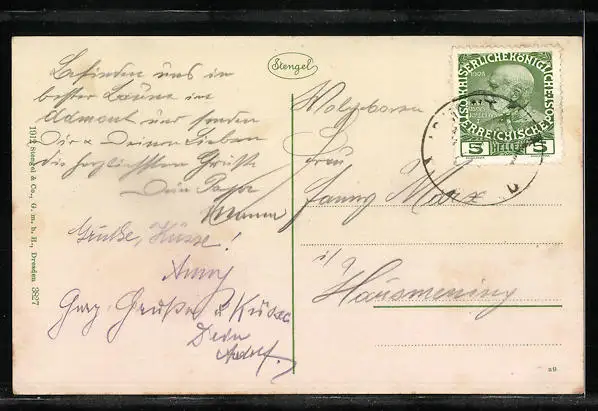 Befinden uns in
bester Laune in
Admont und senden
Dir & Deinen Lieben
die herzlichsten Grüße
Dein Papa
Grüße, Küsse!
Anny
Grüße u Küsse
Dein
Adolf.
1912 Stengel & Co., G. m. b. H., Dresden 3827
Stengel
KAISERLICHE KÖNIGLICHE
ÖSTERREICHISCHE
1908
5 HELLER 5
Wolgeboren
Frau
Fanny Marx
i/
Hausmening
29